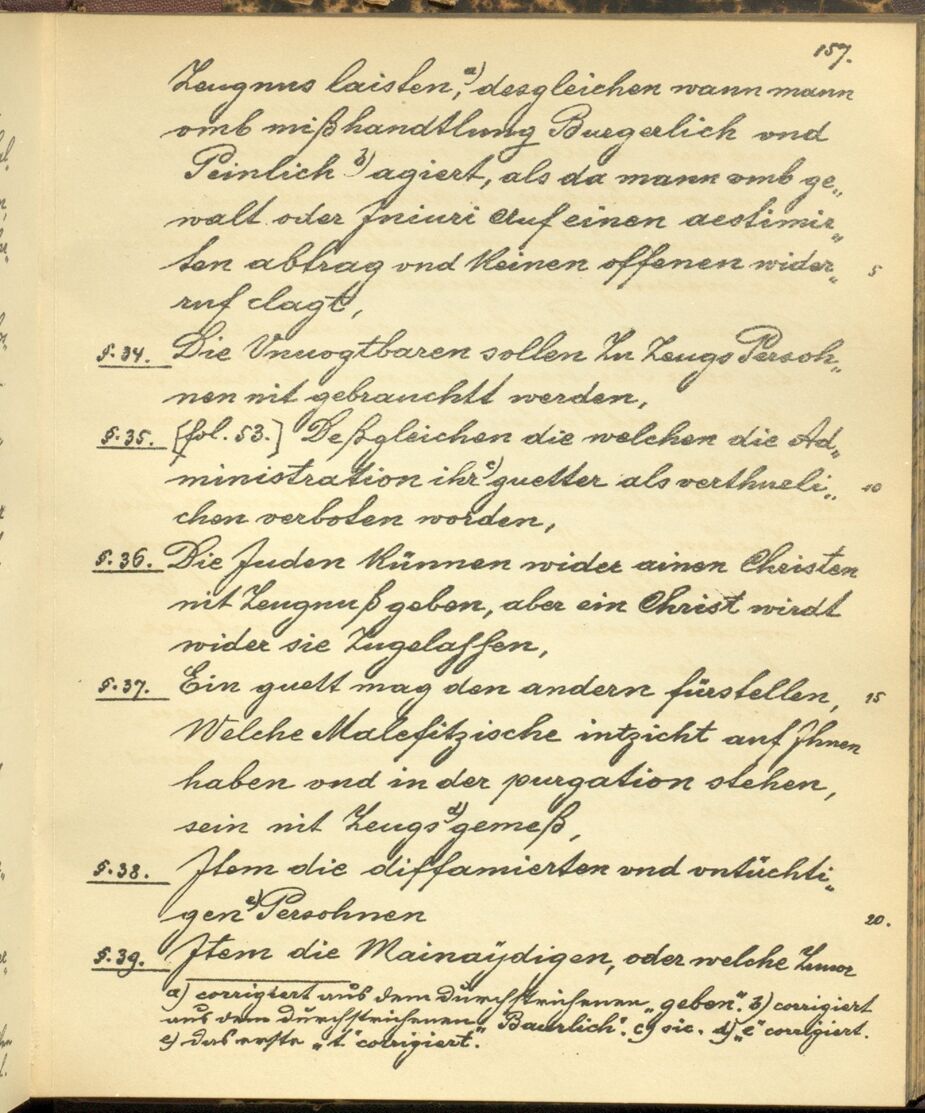 157.
Zeugnus laisten,ᵃ⁾ desgleichen wann mann
vmb mißhandtlung Burgerlich vnd
Peinlich ᵇ⁾ agiert, als da mann vmb ge„
walt oder Iniuri auf einen aestimir„
ten abtrag vnd keinen offenen wider„ 5
ruf clagt,
§.34. Die Vnuogtbaren sollen Zu Zeugs Persoh„
nen nit gebrauchtt werden,
§.35. [fol. 53.] Deßgleichen die welchen die Ad„
ministration ihrᶜ⁾ guetter als verthueli„ 10
chen verboten worden,
§.36. Die Juden künnen wider ainen Christen
nit Zeugnuß geben, aber ein Christ wirdt
wider sie Zugelassen,
§.37. Ein guett mag den andern fürstellen, 15
Welche Malefitzische intzicht auf Ihnen
haben vnd in der purgation stehen,
sein nit Zeugsᵈ⁾ gemeß,
§.38. Item die diffamierten vnd vntüchti„
genᵉ⁾ Persohnen 20.
§.39. Item die Mainaÿdigen, oder welche Zuuor
a) corrigiert aus dem durchstrichenen „geben". b) corrigiert
aus dem durchstrichenen „Baurlich". c) sic. d) „e" corrigiert.
e) das erste „t" corrigiert.